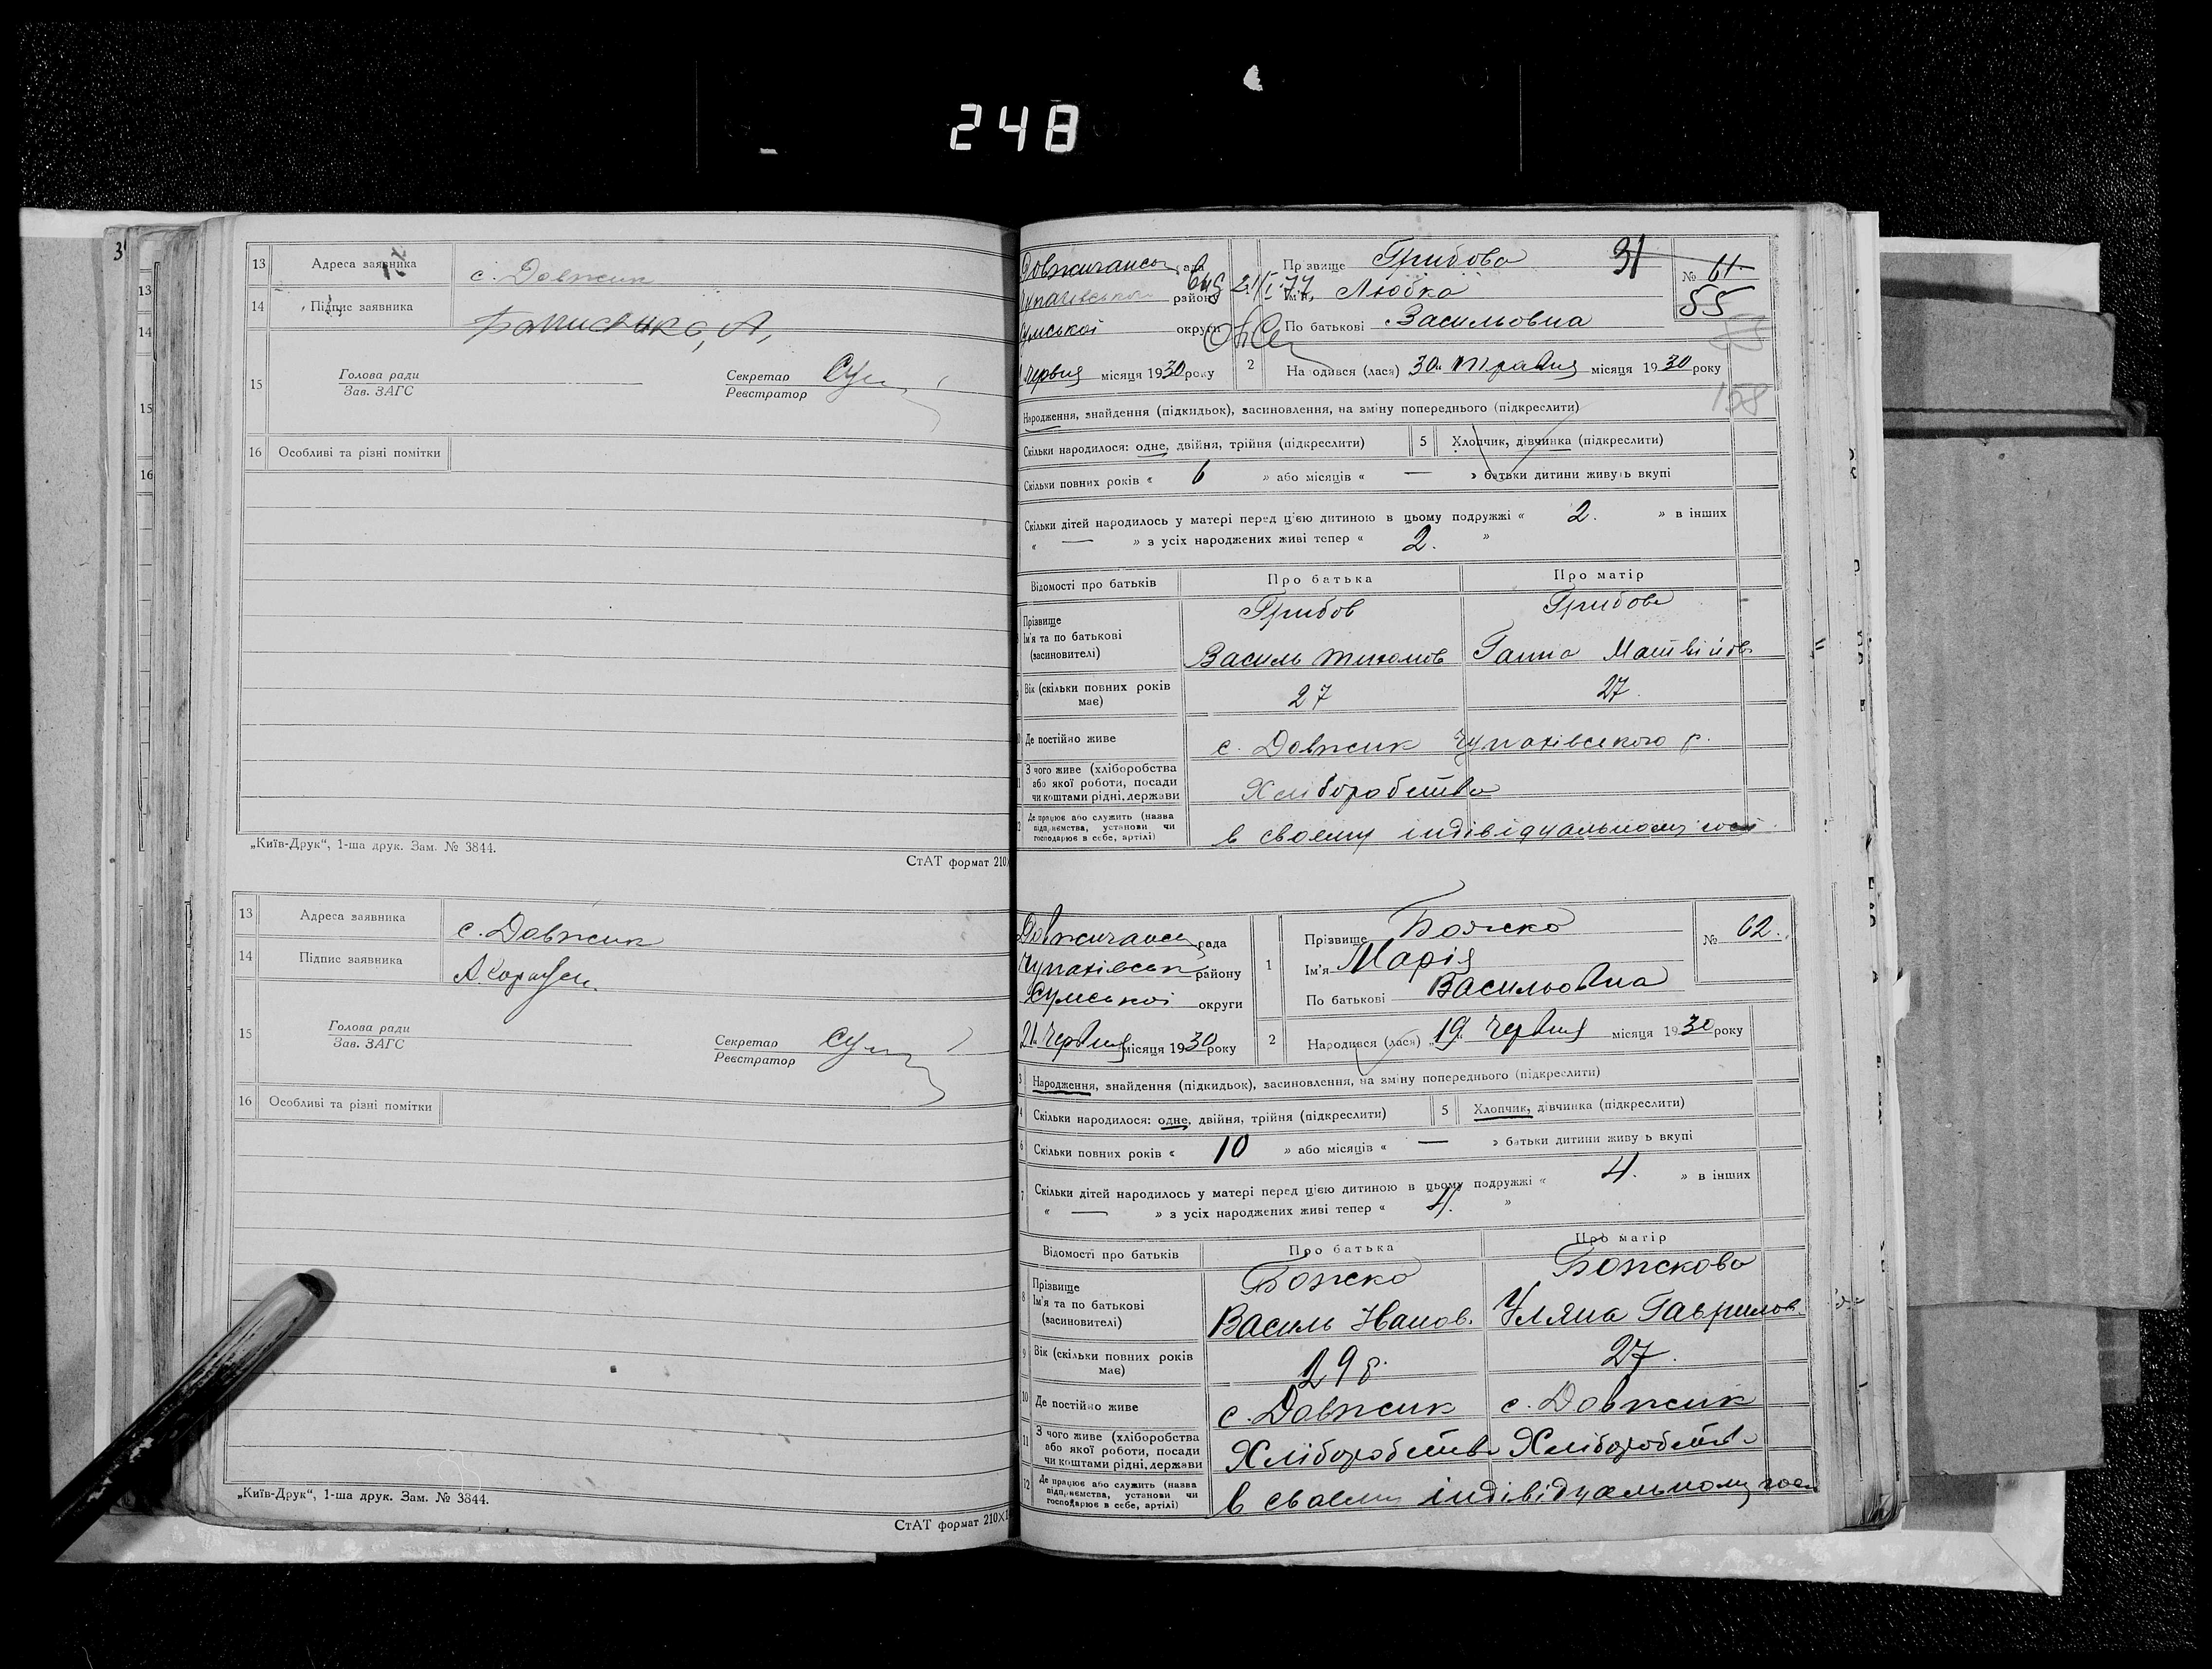 248
3
13
14
15
16
13 Адреса заявника с. Довжик
14 Підпис заявника
15 Голова ради
Зав. ЗАГС
Секретар
Реєстратор
16 Особливі та різні помітки
„Київ-Друк“, 1-ша друк. Зам. № 3844.
СтАТ формат 210
13 Адреса заявника с. Довжик
14 Підпис заявника
15 Голова ради
Зав. ЗАГС
Секретар
Реєстратор
16 Особливі та різні помітки
„Київ-Друк“, 1-ша друк. Зам. № 3844.
СтАТ формат 210×
району
Сумської округи
Червня місяця 1930 року
Прізвище Грибова
31
№ 61.
55
Ім'я, Любка
По батькові Васильовна
2 Народився (лася) 30. Травня місяця 1930 року
158
Народження, знайдення (підкидьок), засиновлення, на зміну попереднього (підкреслити)
Скільки народилося: одне, двійня, трійня (підкреслити) 5 Хлопчик, дівчинка (підкреслити)
Скільки повних років « 6 » або місяців « — » батьки дитини живуть вкупі
Скільки дітей народилось у матері перед цією дитиною в цьому подружжі « 2. » в інших
« — » з усіх народжених живі тепер « 2. »
Відомості про батьків Про батька Про матір
Прізвище
Ім'я та по батькові
(засиновителі)
Грибов Грибова
Василь Ганна Матвійов
Вік (скільки повних років має) 27 27.
Де постійно живе с. Довжик Чупахівського р.
З чого живе (хліборобства або якої роботи, посади чи коштами рідні, держави Хліборобства
Де працює або служить (назва підприємства, установи чи господарює в себе, артілі) в своєму індівідуальному госп
рада
Чупахівськ району
Сумської округи
21. Червня місяця 1930 року
1 Прізвище Божко
№ 62.
Ім'я Марія
По батькові Васильовна
2 Народився (лася) „19„ Червня місяця 1930 року
3 Народження, знайдення (підкидьок), засиновлення, на зміну попереднього (підкреслити)
4 Скільки народилося: одне, двійня, трійня (підкреслити) 5 Хлопчик, дівчинка (підкреслити)
6 Скільки повних років « 10 » або місяців « — » батьки дитини живуть вкупі
7 Скільки дітей народилось у матері перед цією дитиною в цьому подружжі « 4. » в інших
« — » з усіх народжених живі тепер « 4. »
Відомості про батьків Про батька Про матір
8 Прізвище
Ім'я та по батькові
(засиновителі)
Божко Божкова
Василь Іванов. Уляна Гаврилов.
9 Вік (скільки повних років має) 29 р. 27.
10 Де постійно живе с. Довжик с. Довжик
11 З чого живе (хліборобства або якої роботи, посади чи коштами рідні, держави Хліборобства Хліборобств
12 Де працює або служить (назва підприємства, установи чи господарює в себе, артілі) в своєму індівідуальному госп